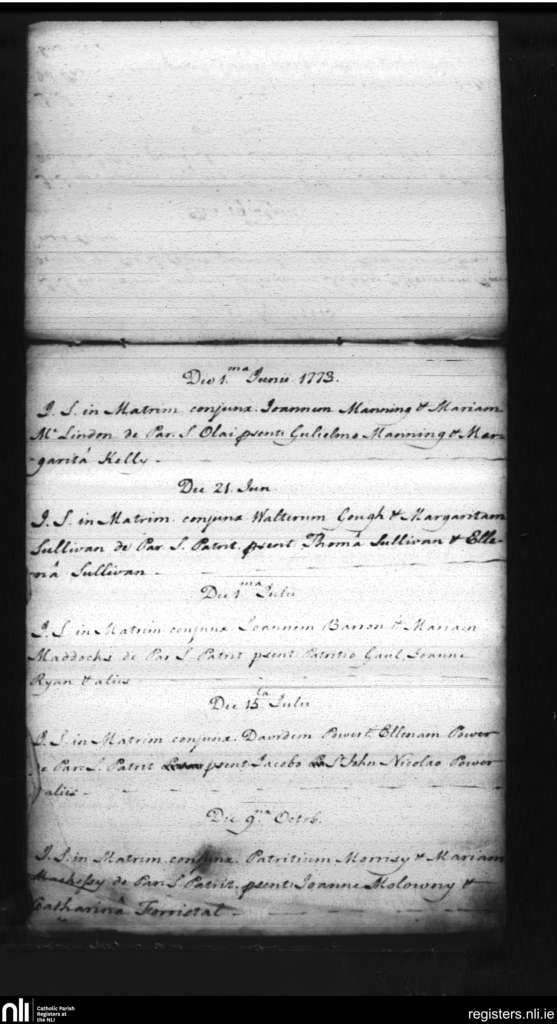 Die 1.ma Junii 1773.
J. S. in Matrim conjunx. Joannem Manning & Mariam
Mc Lindon de Par. S. Olai psent: Gulielmo Manning & Mar-
garitâ Kelly.
Die 21. Jun
J. S. in Matrim. conjunx Walterum Gough & Margaritam
Sullivan de Par S. Patrit. psent Thomâ Sullivan & Elle-
nâ Sullivan
Die 1.ma Julii
J. S. in Matrim conjunx Joannem Barron & Mariam
Maddocks de Par S Patrit psent Patritio Gaul, Joanne
Ryan & aliis
Die 15.ta Julii
J. S. in Matrim conjunx. Davidem Power & Ellenam Power
de Par. S. Patrit psent Jacobo St John Nicolao Power
& aliis
Die 9.na Octob.
J. S. in Matrim. conjunx. Patritium Morrisy & Mariam
de Par. S. Patrit. psent: Joanne Molowny &
Catharinâ
nli
Catholic Parish
Registers at
the NLI
registers.nli.ie